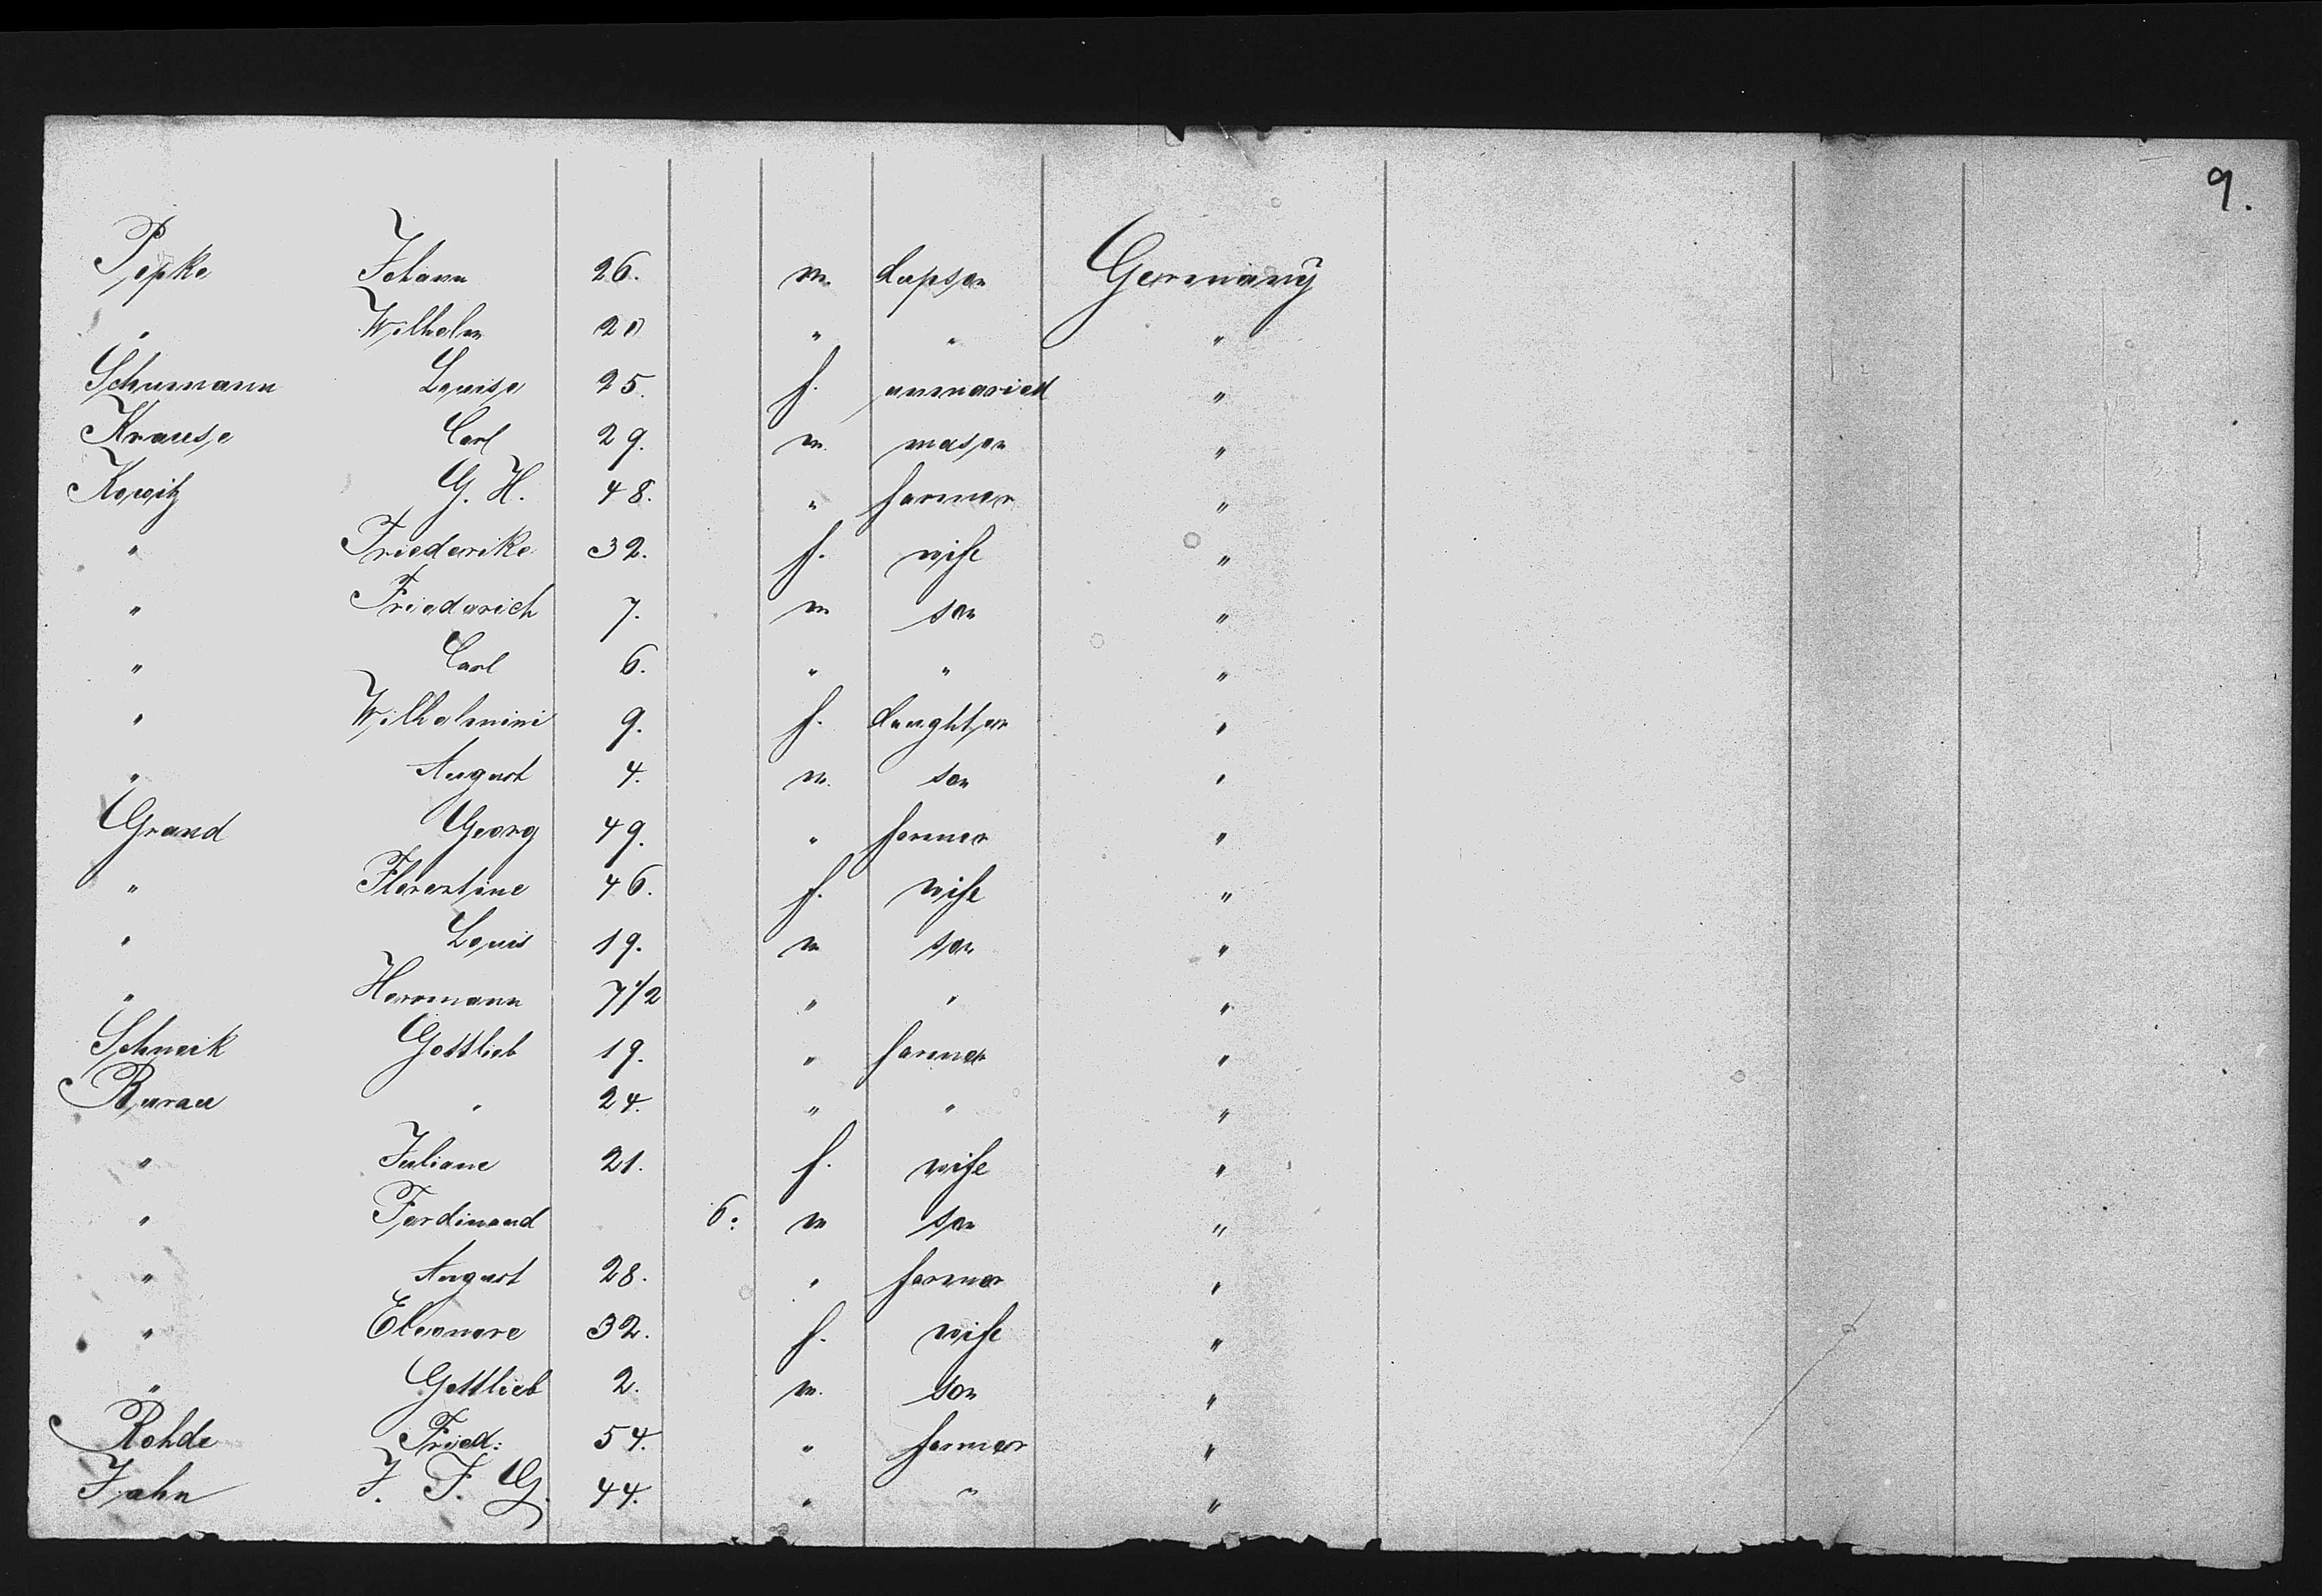 9.
Pepke Johann 26. m. Germany
" Wilhelm 20 " " "
Schumann Louise 25. f. unmaried "
Krause Carl 29. m. mason "
Kowitz G. H. 48. " farmer "
" Friederike 32. f. wife "
" Friederich 7. m son "
" Carl 6. " " "
" Wilhelmini 9. f. daughter "
" August 4. m. son "
Grand Georg 49. " farmer "
" Florentine 46. f. wife "
" Louis 19. m son "
" Herrmann 7 1/2 " " "
Gottlieb 19. " farmer "
Burau " 24. " " "
" Juliane 21. f. wife "
" Ferdinand 6. m son "
" August 28. " farmer "
" Eleonore 32. f. wife "
" Gottlieb 2. m. son "
Rohde Fried: 54. " farmer "
Jahn J. F. G. 44. " " "